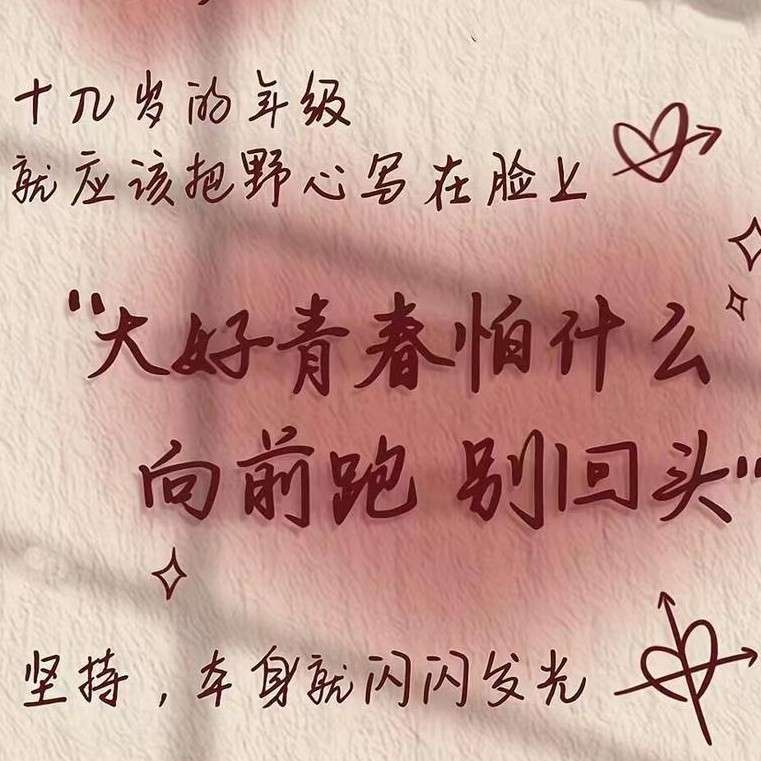 十几岁的年级
就应该把野心写在脸上
"大好青春怕什么
向前跑 别回头"
坚持，本身就闪闪发光